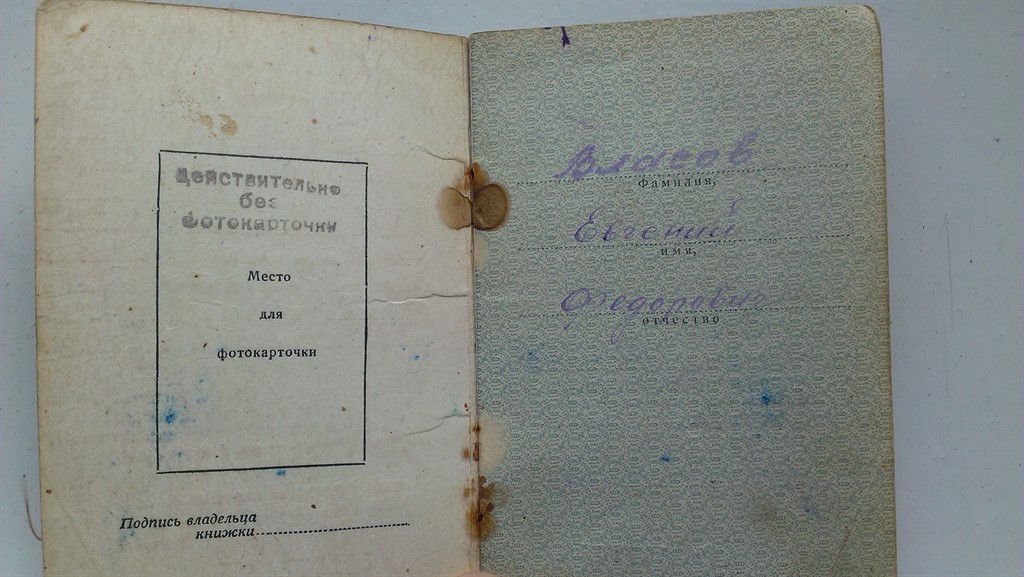 Действительно
без
фотокарточки
Место
для
фотокарточки
Подпись владельца
книжки
Власов
фамилия,
Евгений
имя,
Федорович
отчество